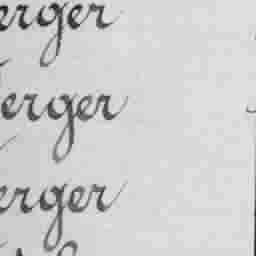 erger
erger
erger